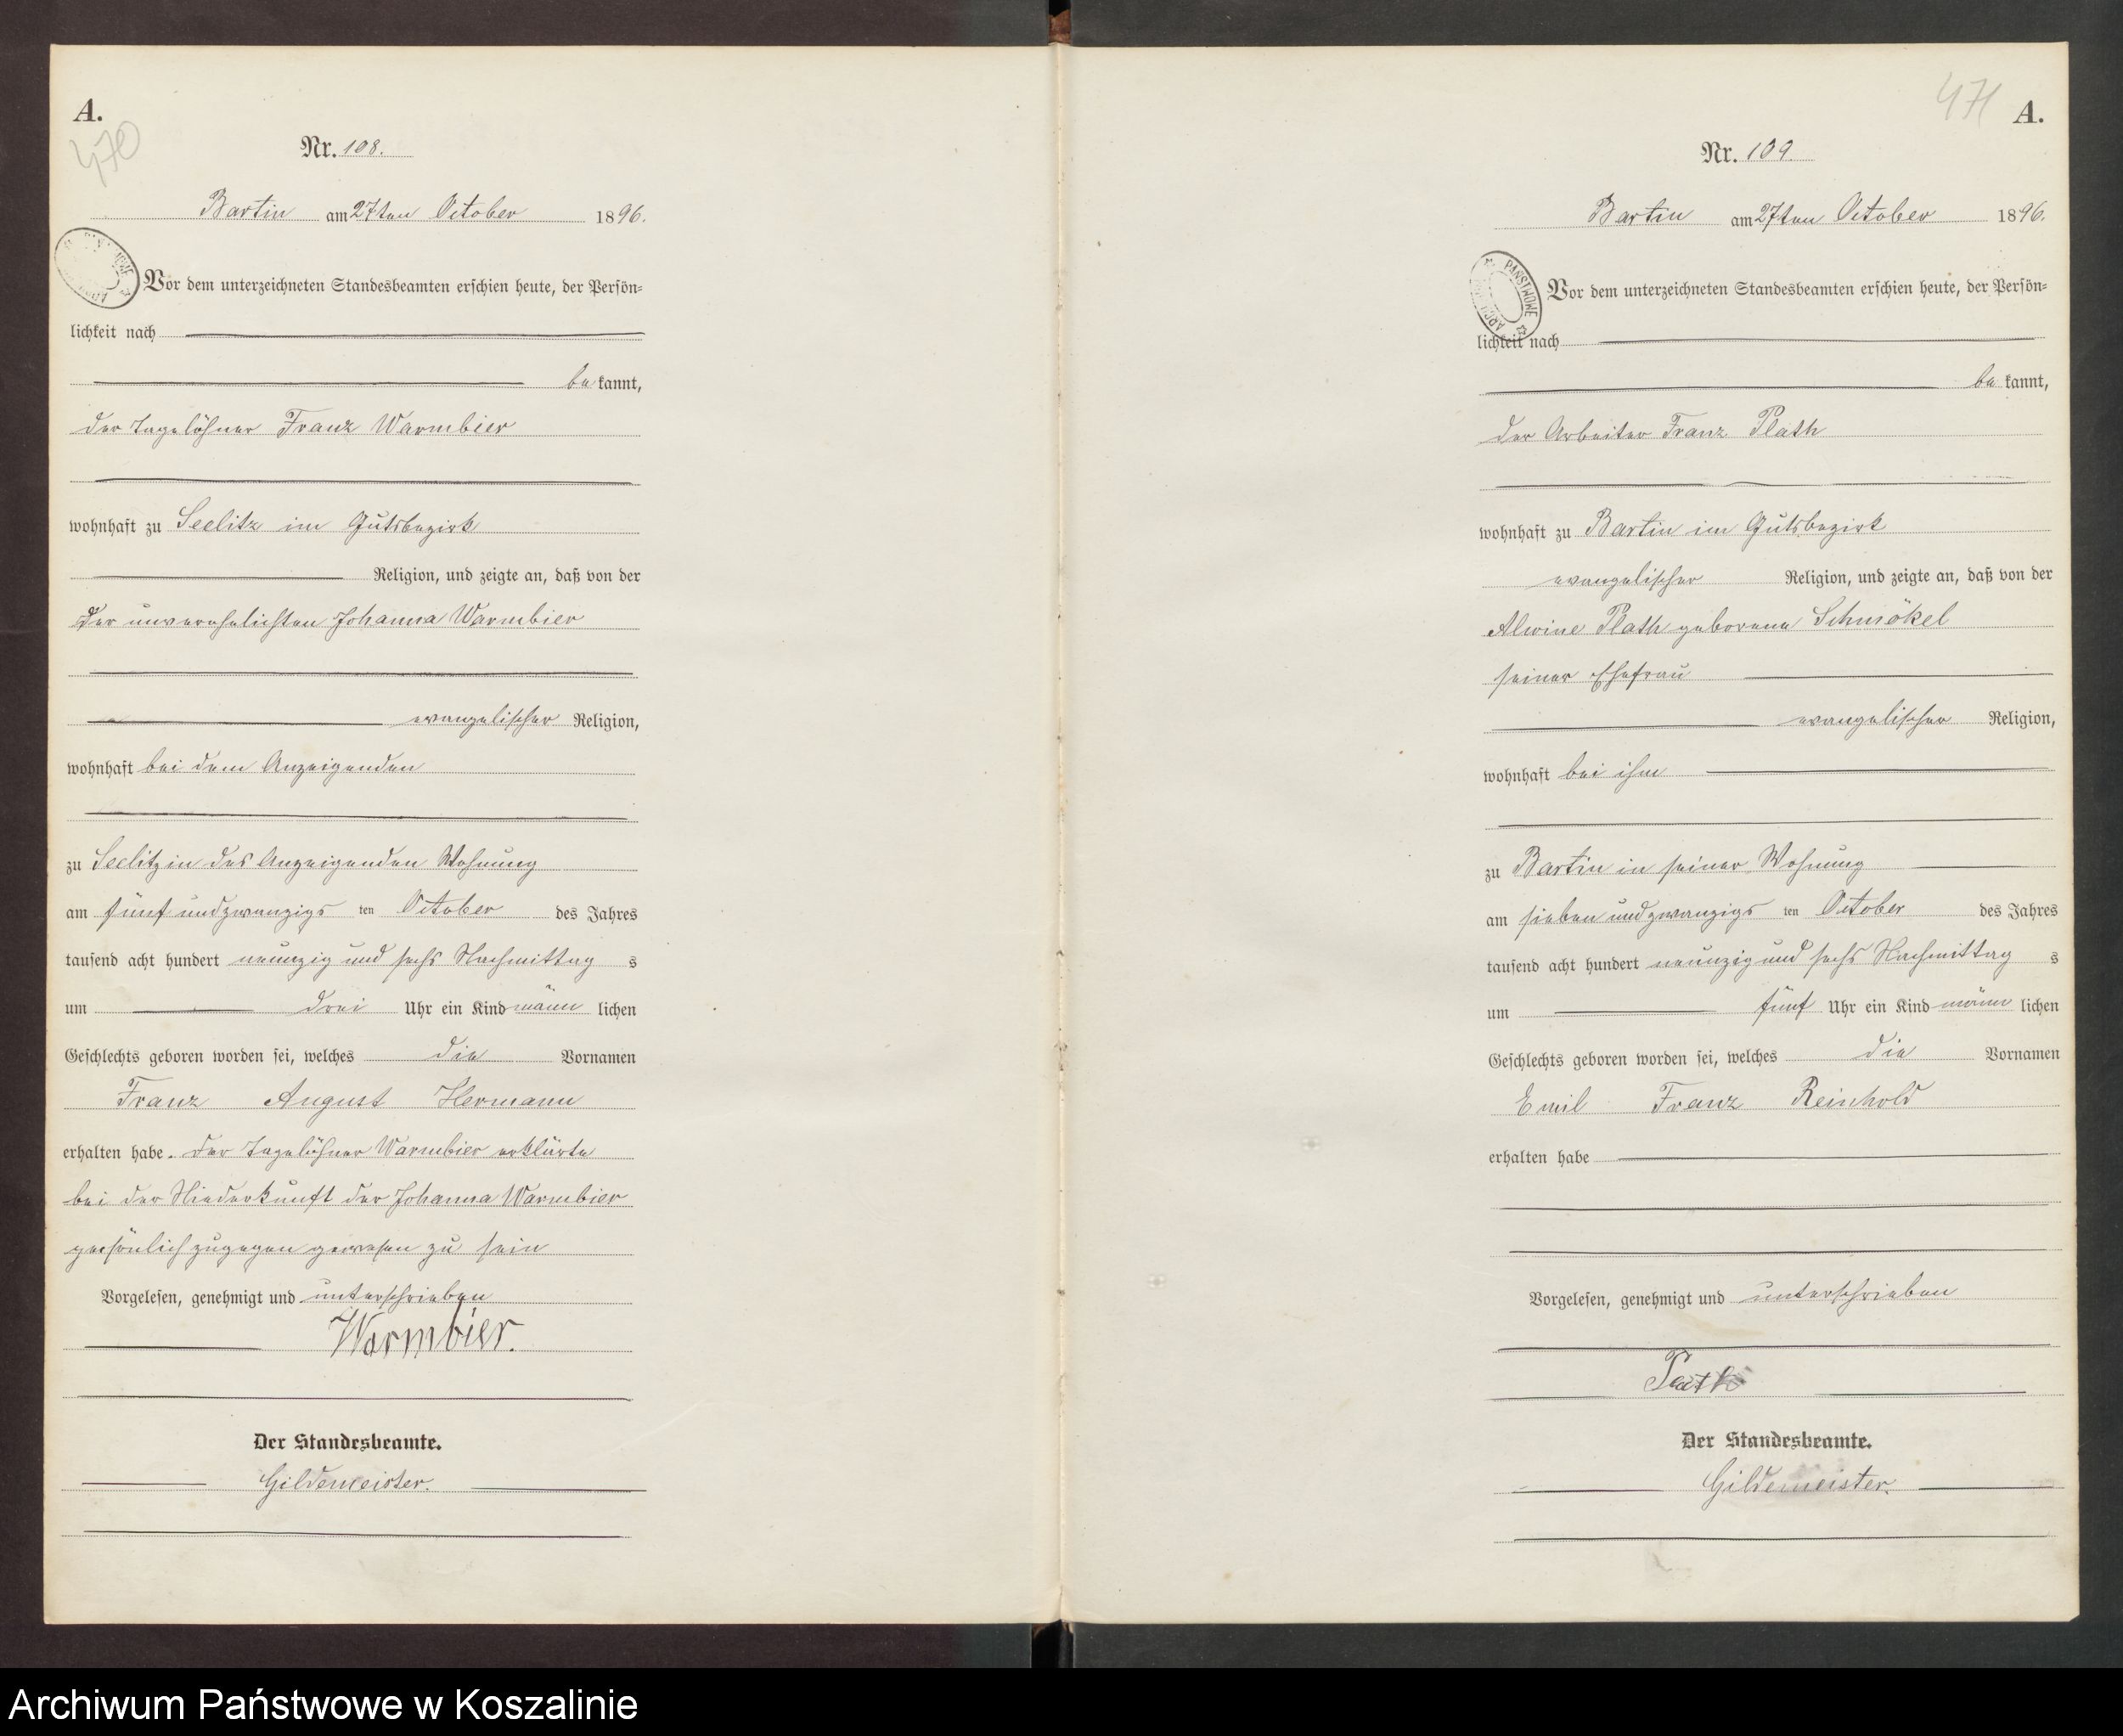 A.
470
Nr. 108.
Bartin am 27ten October 1896.
Vor dem unterzeichneten Standesbeamten erschien heute, der Persön=
lichkeit nach
be kannt,
der Tagelöhner Franz Warmbier
wohnhaft zu Seelitz im Gutsbezirk
Religion, und zeigte an, daß von der
der unverehelichten Johanna Warmbier
evangelischer Religion,
wohnhaft bei dem Anzeigenden
zu Seelitz in des Anzeigenden Wohnung
am fünf und zwanzigs ten October des Jahres
tausend acht hundert neunzig und sechs Nachmittag s
um drei Uhr ein Kind männ lichen
Geschlechts geboren worden sei, welches die Vornamen
Franz August Hermann
erhalten habe. Der Tagelöhner Warmbier erklärte
bei der Niederkunft der Johanna Warmbier
persönlich zugegen gewesen zu sein
Vorgelesen, genehmigt und unterschrieben
Warmbier.
Der Standesbeamte.
Gildemeister.
471
A.
Nr. 109
Bartin am 27ten October 1896.
PAŃSTWOWE
Vor dem unterzeichneten Standesbeamten erschien heute, der Persön=
lichkeit nach
be kannt,
der Arbeiter Franz Plath
wohnhaft zu Bartin im Gutsbezirk
evangelischer Religion, und zeigte an, daß von der
Alwine Plath geborene Schmökel
seiner Ehefrau
evangelischer Religion,
wohnhaft bei ihm
zu Bartin in seiner Wohnung
am sieben und zwanzigs ten October des Jahres
tausend acht hundert neunzig und sechs Nachmittag s
um fünf Uhr ein Kind männ lichen
Geschlechts geboren worden sei, welches die Vornamen
Emil Franz Reinhold
erhalten habe
Vorgelesen, genehmigt und unterschrieben
Plath
Der Standesbeamte.
Gildemeister.
Archiwum Państwowe w Koszalinie